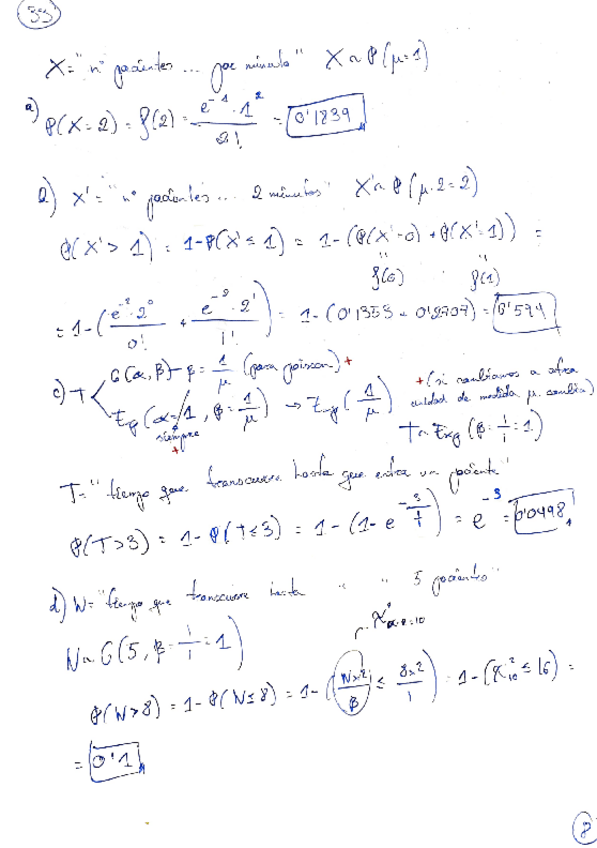 33
X = "nº pacientes ... por minuto" X ~ P(μ=1)
a) P(X=2) = f(2) = e^-1 · 1^2 / 2! = 0'1839
b) X' = "nº pacientes ... 2 minutos" X' ~ P(μ·2=2)
P(X'>1) = 1-P(X'≤1) = 1-(P(X'=0) + P(X'=1)) =
f(0) f(1)
= 1-(e^-2 · 2^0 / 0! + e^-2 · 2^1 / 1!) = 1-(0'1353 + 0'2707) = 0'594
c) T G(α, β) - β = 1/μ (para poisson) +
Exp(α=1, β=1/μ) → Exp(1/μ)
siempre
+
+ (si cambiamos a otra
unidad de medida μ cambia)
T ~ Exp(β = 1/1 = 1)
T = "tiempo que transcurre hasta que entra un paciente"
P(T>3) = 1-P(T≤3) = 1-(1-e^-3/1) = e^-3 = 0'0498
d) W = "tiempo que transcurre hasta " " 5 pacientes"
W ~ G(5, β = 1/1 = 1)
P(W>8) = 1-P(W≤8) = 1-(W×2/β ≤ 8×2/1) = 1-(χ²10 ≤ 16) =
= 0'1
8